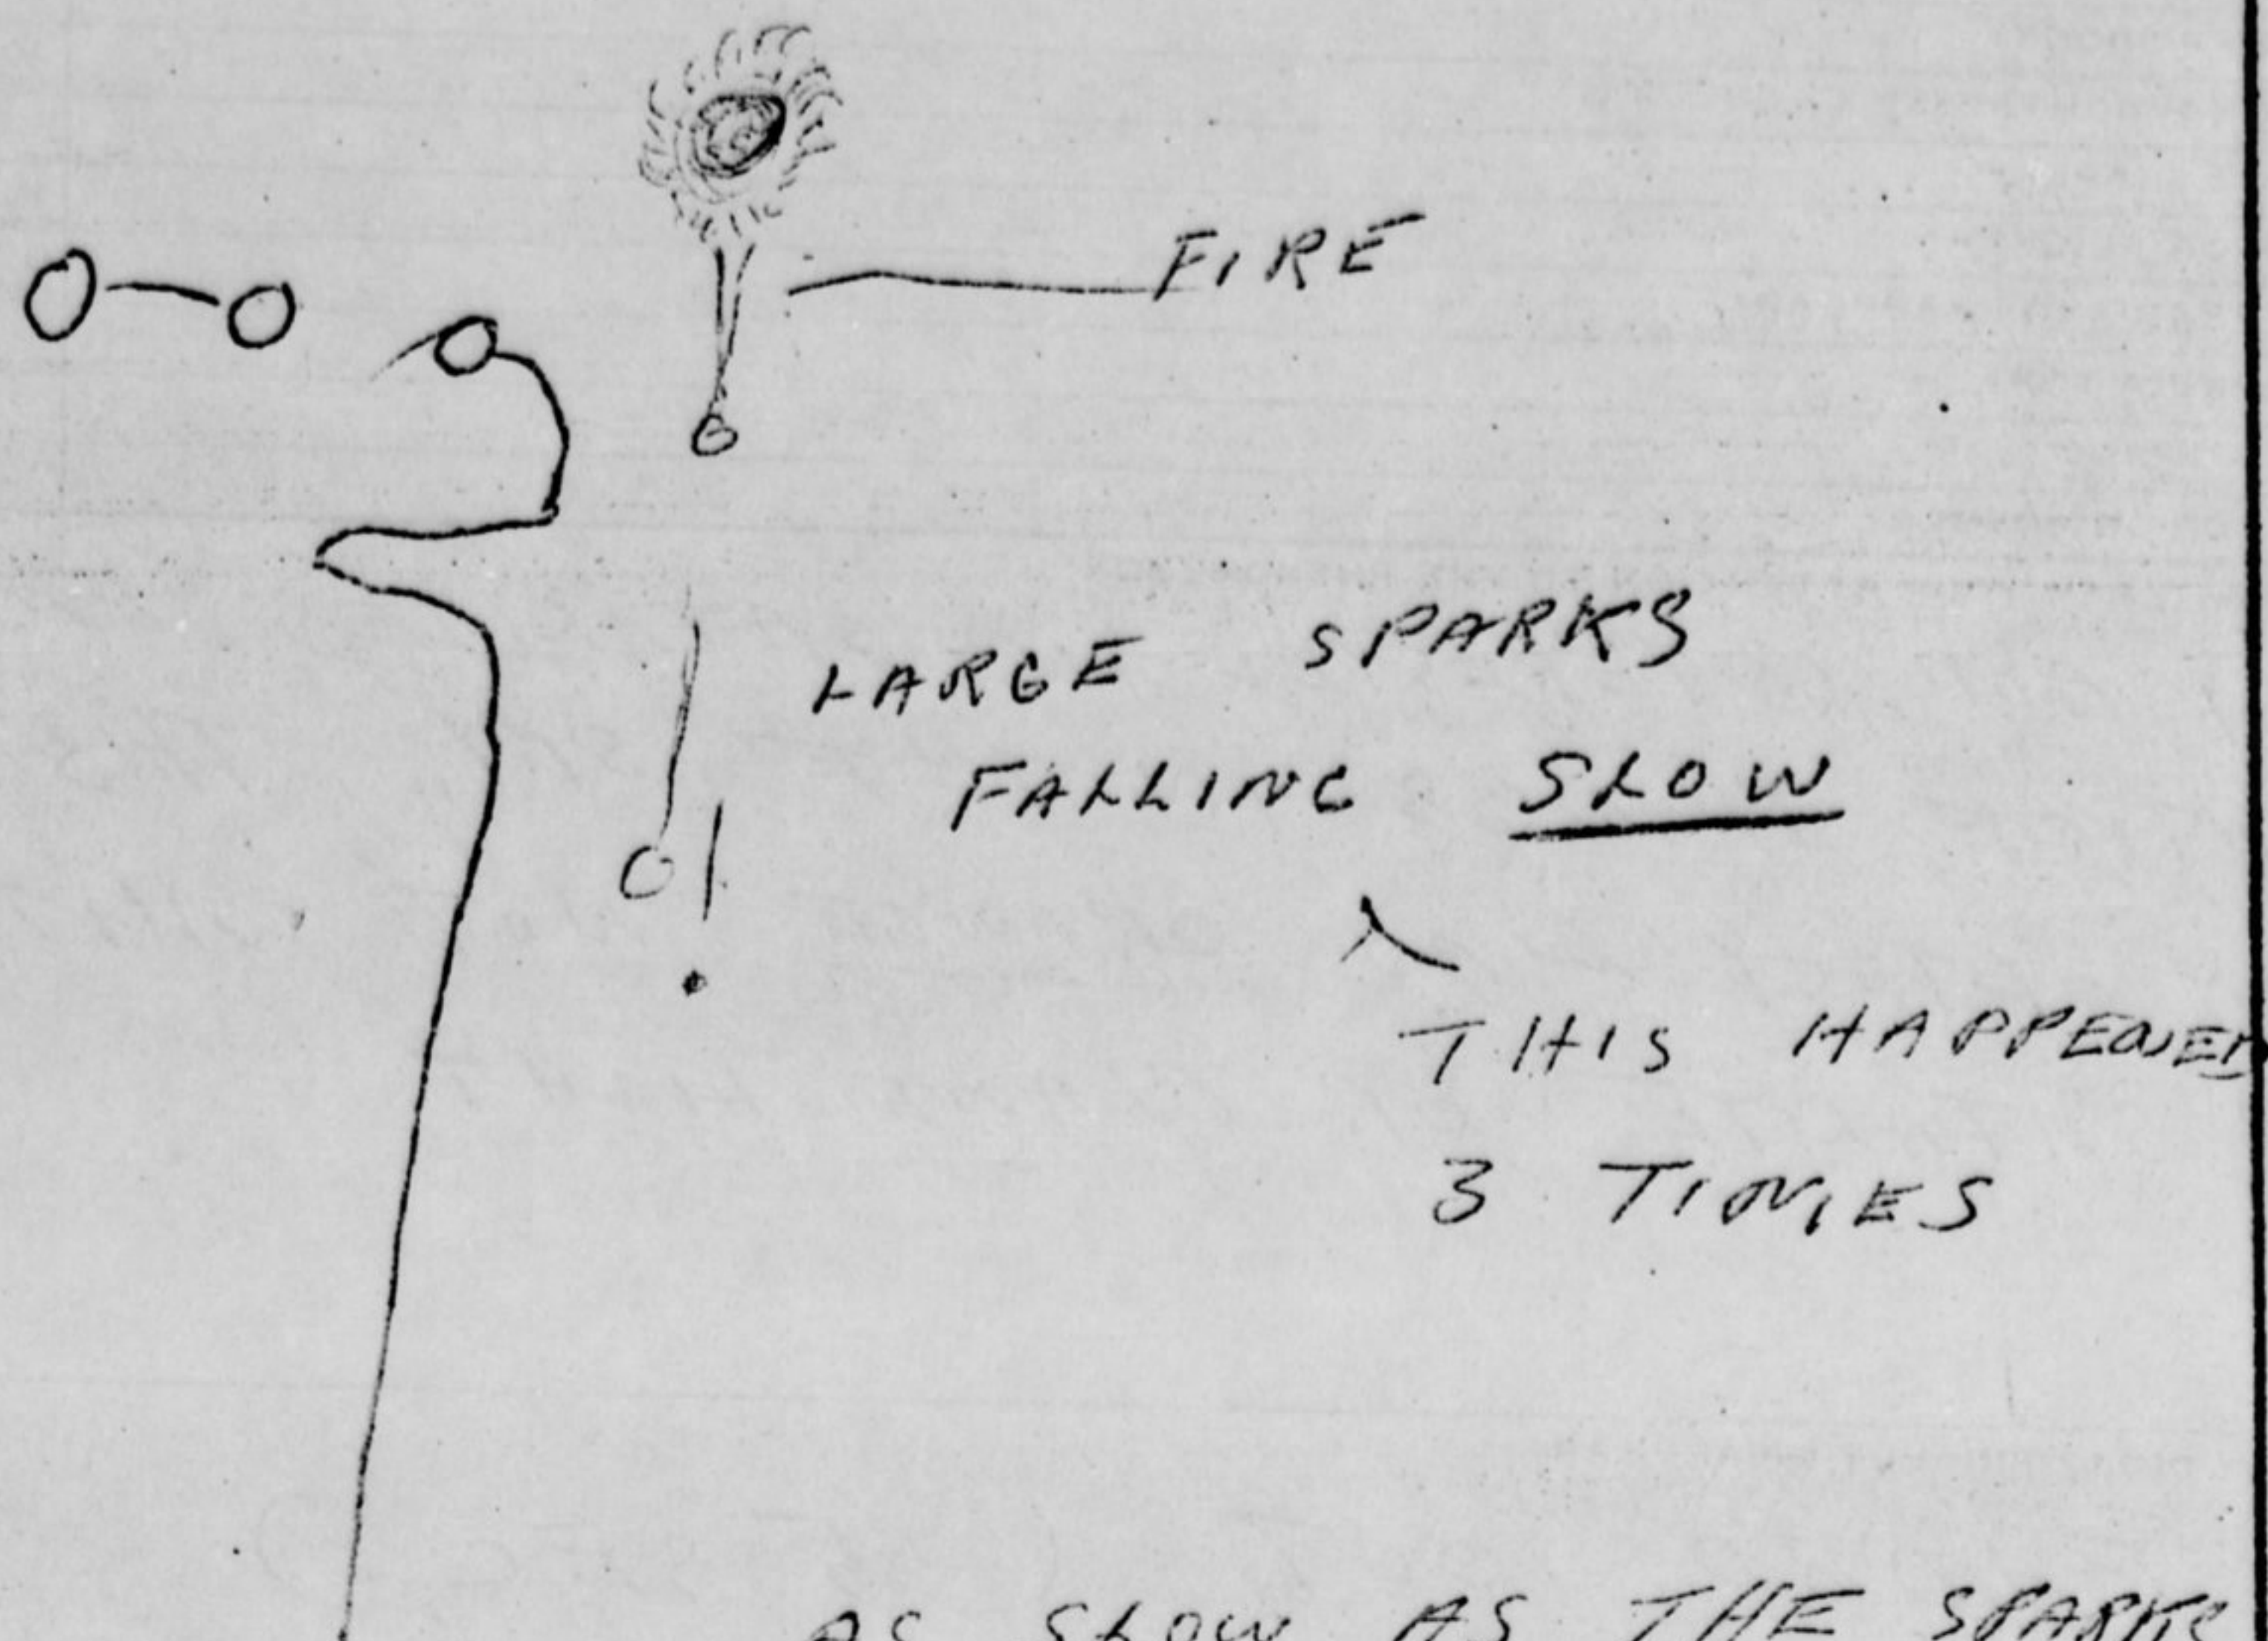 FIRE
LARGE SPARKS
FALLING SLOW
THIS HAPPENED
3 TIMES
AS SLOW AS THE SPARKS